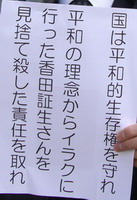 国は平和的生存権を守れ
平和の理念からイラクに
行った香田証生さんを
見捨て殺した責任を取れ